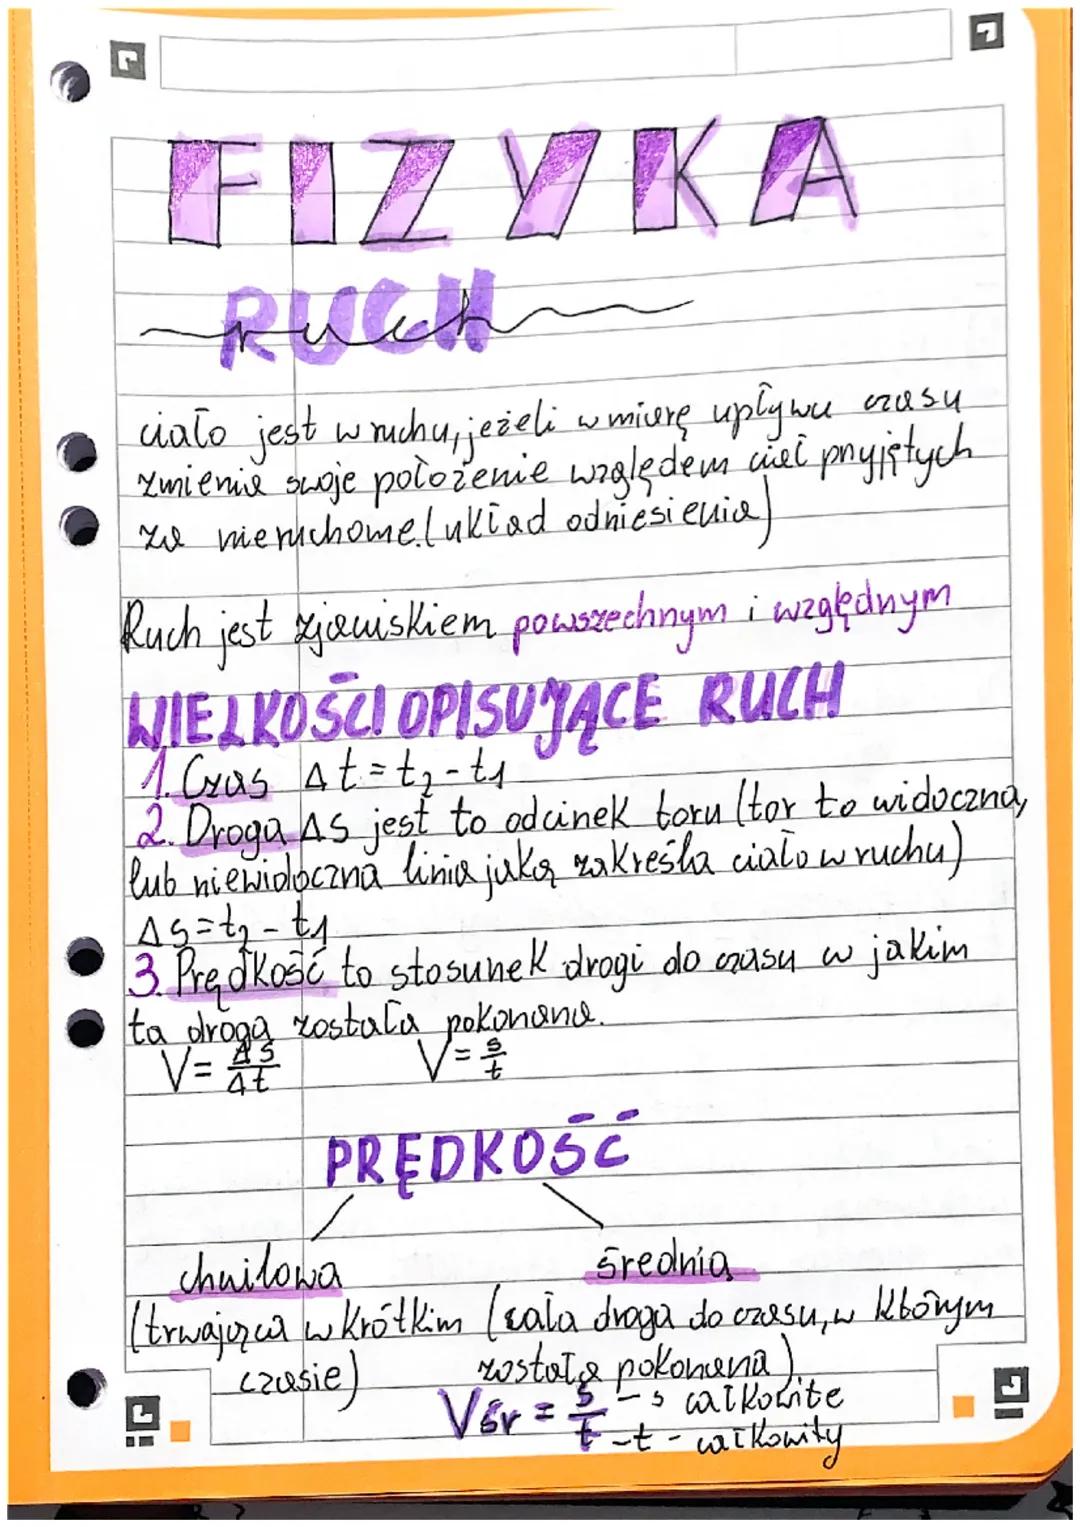 FIZYKA
RUCH
ruch
ciało jest w ruchu, jeżeli w miarę upływu czasu
zmienia swoje położenie względem ciał przyjętych
za nieruchome. (układ odniesienia)
Ruch jest zjawiskiem powszechnym i względnym
WIELKOŚCI OPISUJĄCE RUCH
1. Czas Δt = t₂ - t₁
2. Droga ΔS jest to odcinek toru (tor to widoczna,
lub niewidoczna linia jaką zakreśla ciało w ruchu)
ΔS = t₂ - t₁
3. Prędkość to stosunek drogi do czasu w jakim
ta droga została pokonana.
V = ΔS/Δt V = s/t
PRĘDKOŚĆ
chwilowa średnia
(trwająca w krótkim (cała droga do czasu, w którym
czasie) została pokonana)
Vśr = s/t - s całkowite
- t - całkowity